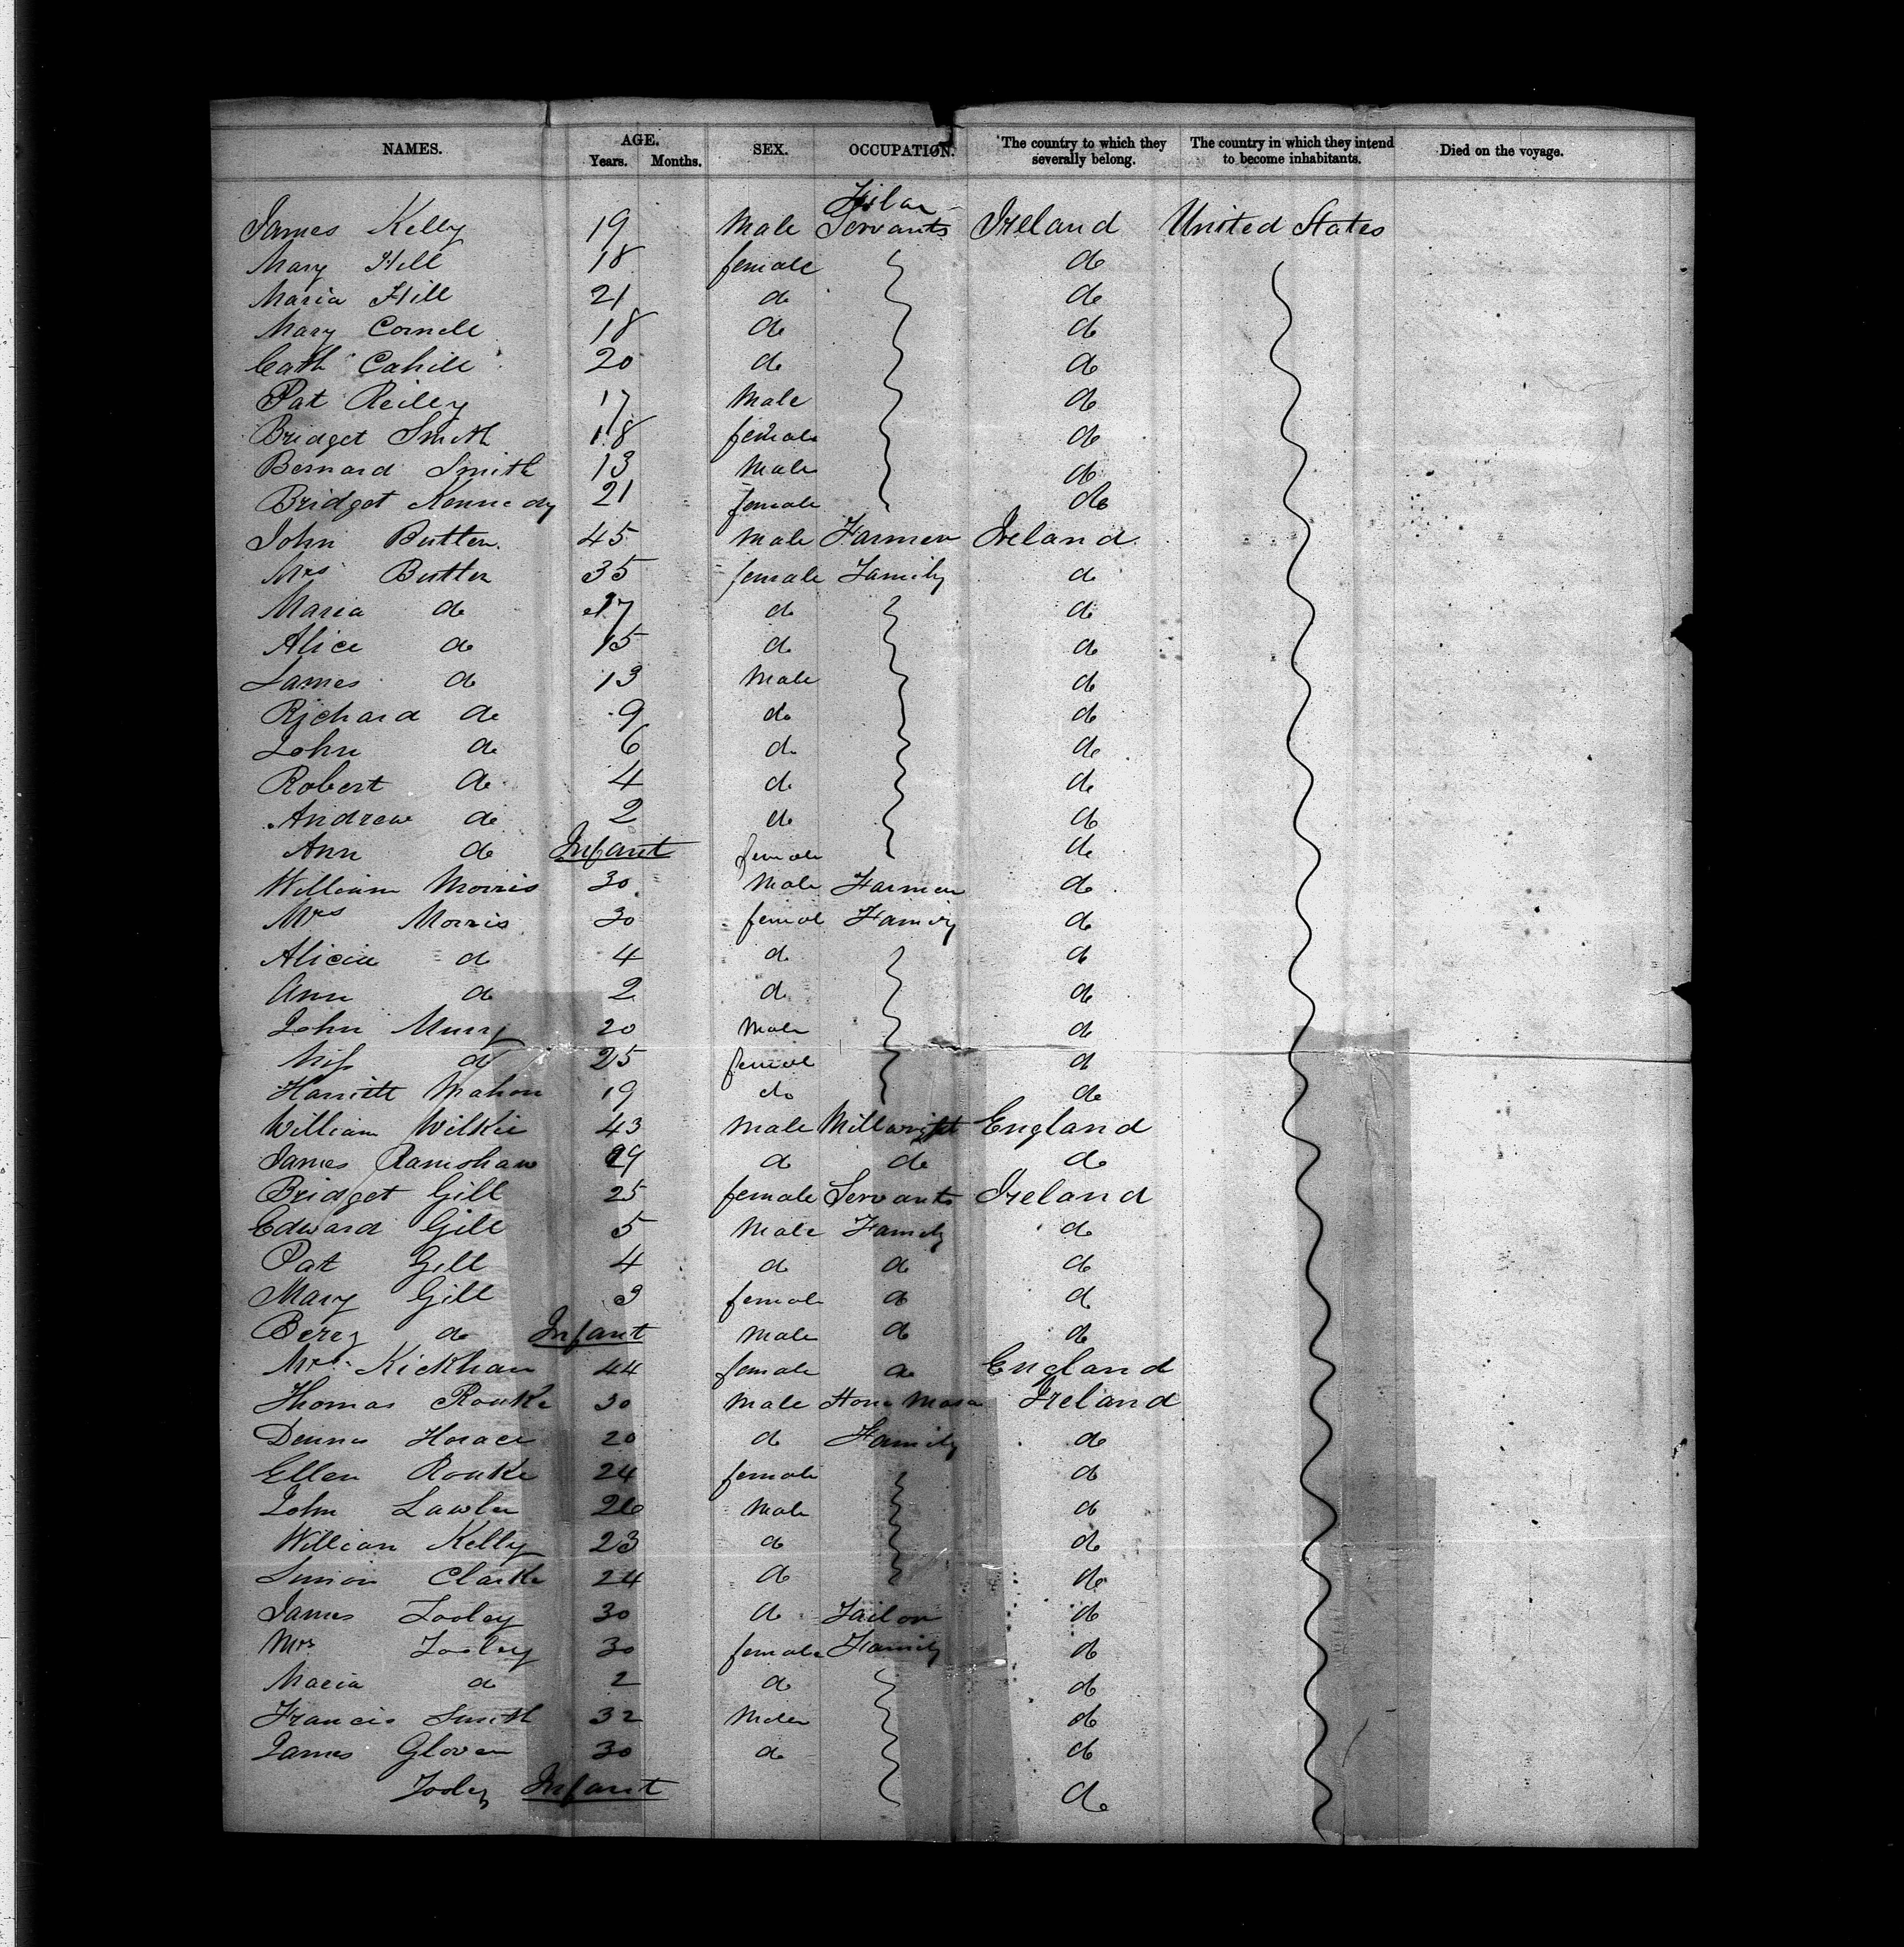 NAMES. AGE. Years. Months. SEX. OCCUPATION. The country to which they severally belong. The country in which they intend to become inhabitants. Died on the voyage.
James Kelly 19 Male Servants Ireland United States
Mary Hill 18 female do
Maria Hill 21 do do
Mary Cornell 18 do do
Cath Cahill 20 do do
Pat Reiley 17 Male do
Bridget Smith 18 female do
Bernard Smith 13 Male do
Bridget Kennedy 21 female do
John Butler 45 Male Farmer Ireland
Mrs Butler 35 female Family do
Maria do 17 do do
Alice do 15 do do
James do 13 Male do
Richard do 9 do do
John do 6 do do
Robert do 4 do do
Andrew do 2 do do
Ann do Infant female do
William Morris 30 Male Farmer do
Mrs Morris 30 femal Family do
Alicia do 4 do do
Ann do 2 do do
John Murry 20 Male do
Miss do 25 female do
Harriett Mahon 19 do do
William Wilkie 43 Male Millwright England
James Ramshaw 29 do do do
Bridget Gill 25 female Servants Ireland
Edward Gill 5 Male Family do
Pat Gill 4 do do do
Mary Gill 3 female do do
do Infant Male do do
Mrs Kickham 44 female do England
Thomas Rourke 30 Male Stone Mason Ireland
Dennis Horace 20 do Family do
Ellen Rourke 24 female do
John Lawler 26 Male do
William Kelly 23 do do
Simon Clarke 24 do do
James Tooley 30 do Tailor do
Mrs Tooley 30 female Family do
Maria do 2 do do
Francis Smith 32 Male do
James Glover 30 do do
Tooley Infant do